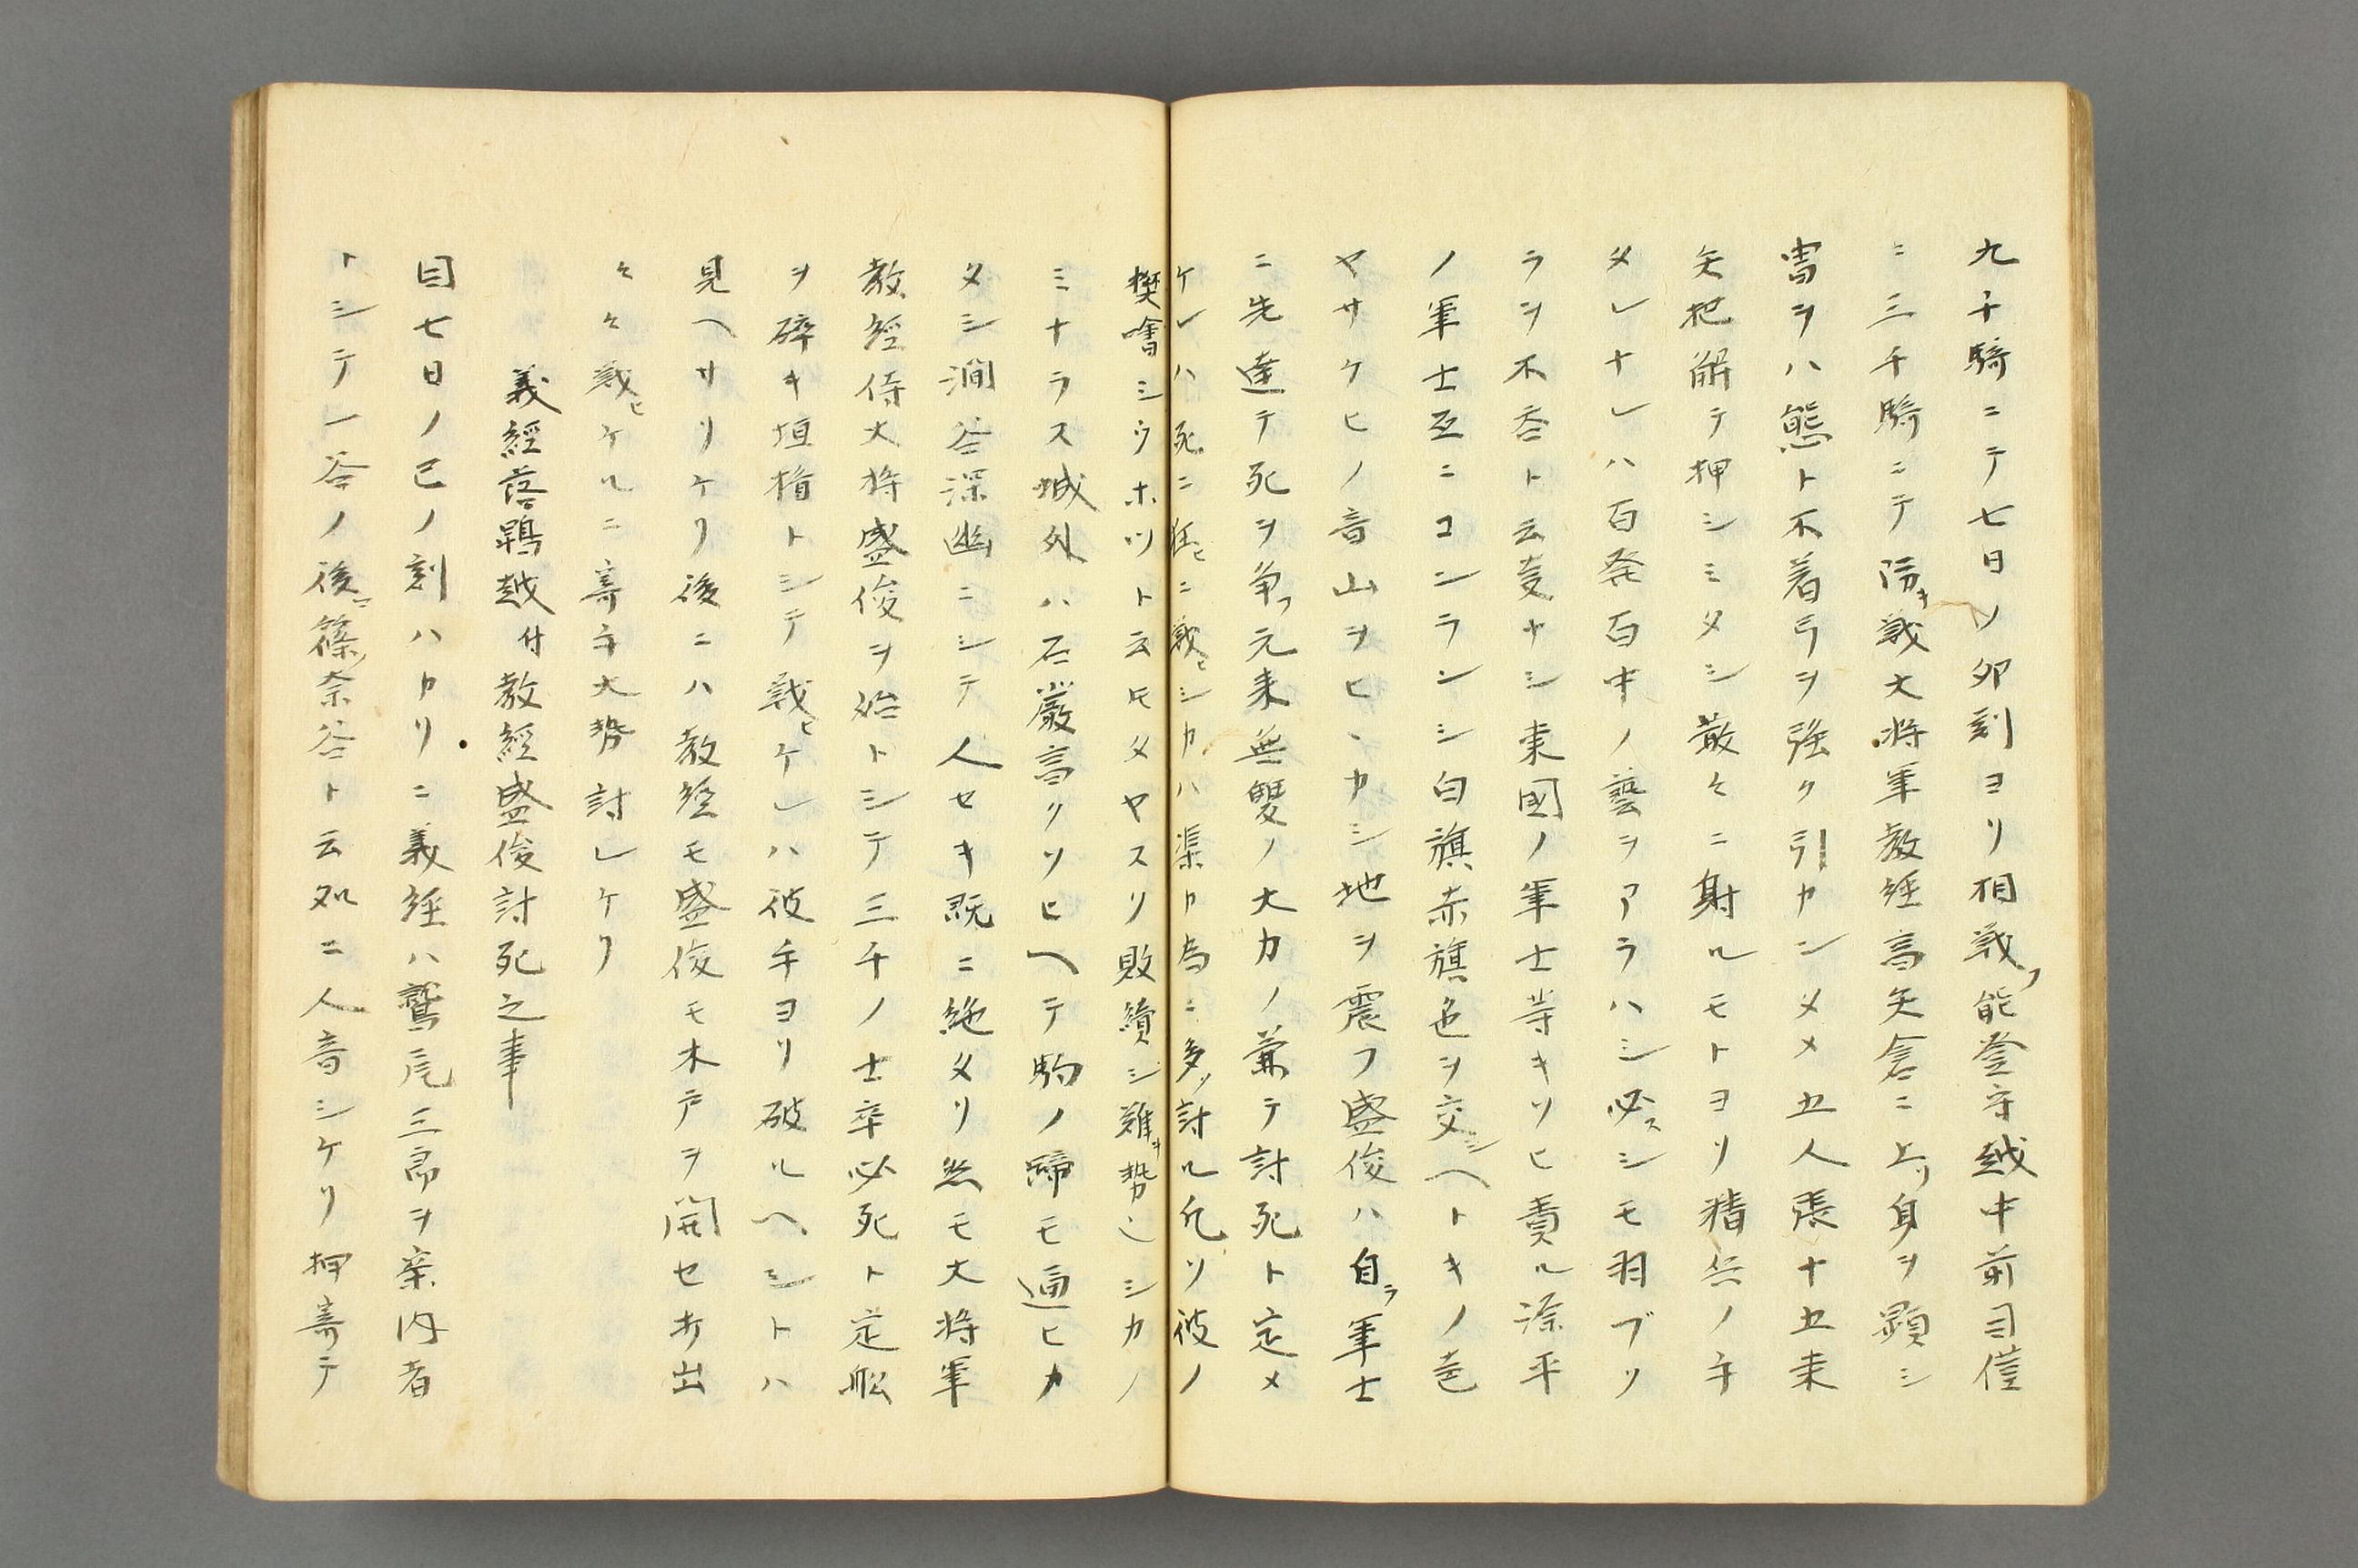 九千騎ニテ七日ノ卯刻ヨリ相戦フ能登守越中前司僅
ニ三千騎ニテ防キ戦大将軍教経高矢倉ニ上リ身ヲ顕シ
冑ヲハ態ト不着弓ヲ強ク引カンメメ五人張十五束
矢把解テ押シミタシ散々ニ射ルモトヨリ精兵ノ手
タレナレハ百発百中ノ藝ヲアラハシ必スシモ羽ブリ
ラヲ不呑ト云叓ナシ東國ノ軍士等キソヒ責ル源平
ノ軍士互ニコンランシ白旗赤旗色ヲ交ミヘトキノ声
ヤサケヒノ音山ヲヒヽカシ地ヲ震フ盛俊ハ自ラ軍士
ニ先達テ死ヲ争フ元来無雙ノ大力ノ兼テ討死ト定メ
ケレハ死ニ狂ヒニ戦ヒシカハ渠カ為ニ多ソ討ル凡ソ彼ノ
樊噲シウホツト云トモタヤスリ敗績シ難キ勢也シカノ
ミナラス城外ハ石巌高クソヒヘテ駒ノ蹄モ通ヒカ
タシ澗谷深幽ニシテ人セキ既ニ絶タリ然モ大将軍
教経侍大将盛俊ヲ始トシテ三千ノ士卒必死ト定舩
ヲ砕キ垣楯トシテ戦ヒケレハ彼手ヨリ破ルヘシトハ
見ヘサリケリ後ニハ教経モ盛俊モ木戸ヲ開セ打出
々々戦ヒケルニ寄手大勢討レケリ
義經落鵯越付教經盛俊討死之事
同七日ノ巳ノ刻ハカリニ義経ハ鷲尾三郎ヲ案内者
トシテ一谷ノ後ニ篠ノ奈谷ト云処ニ人音シケリ押寄テ